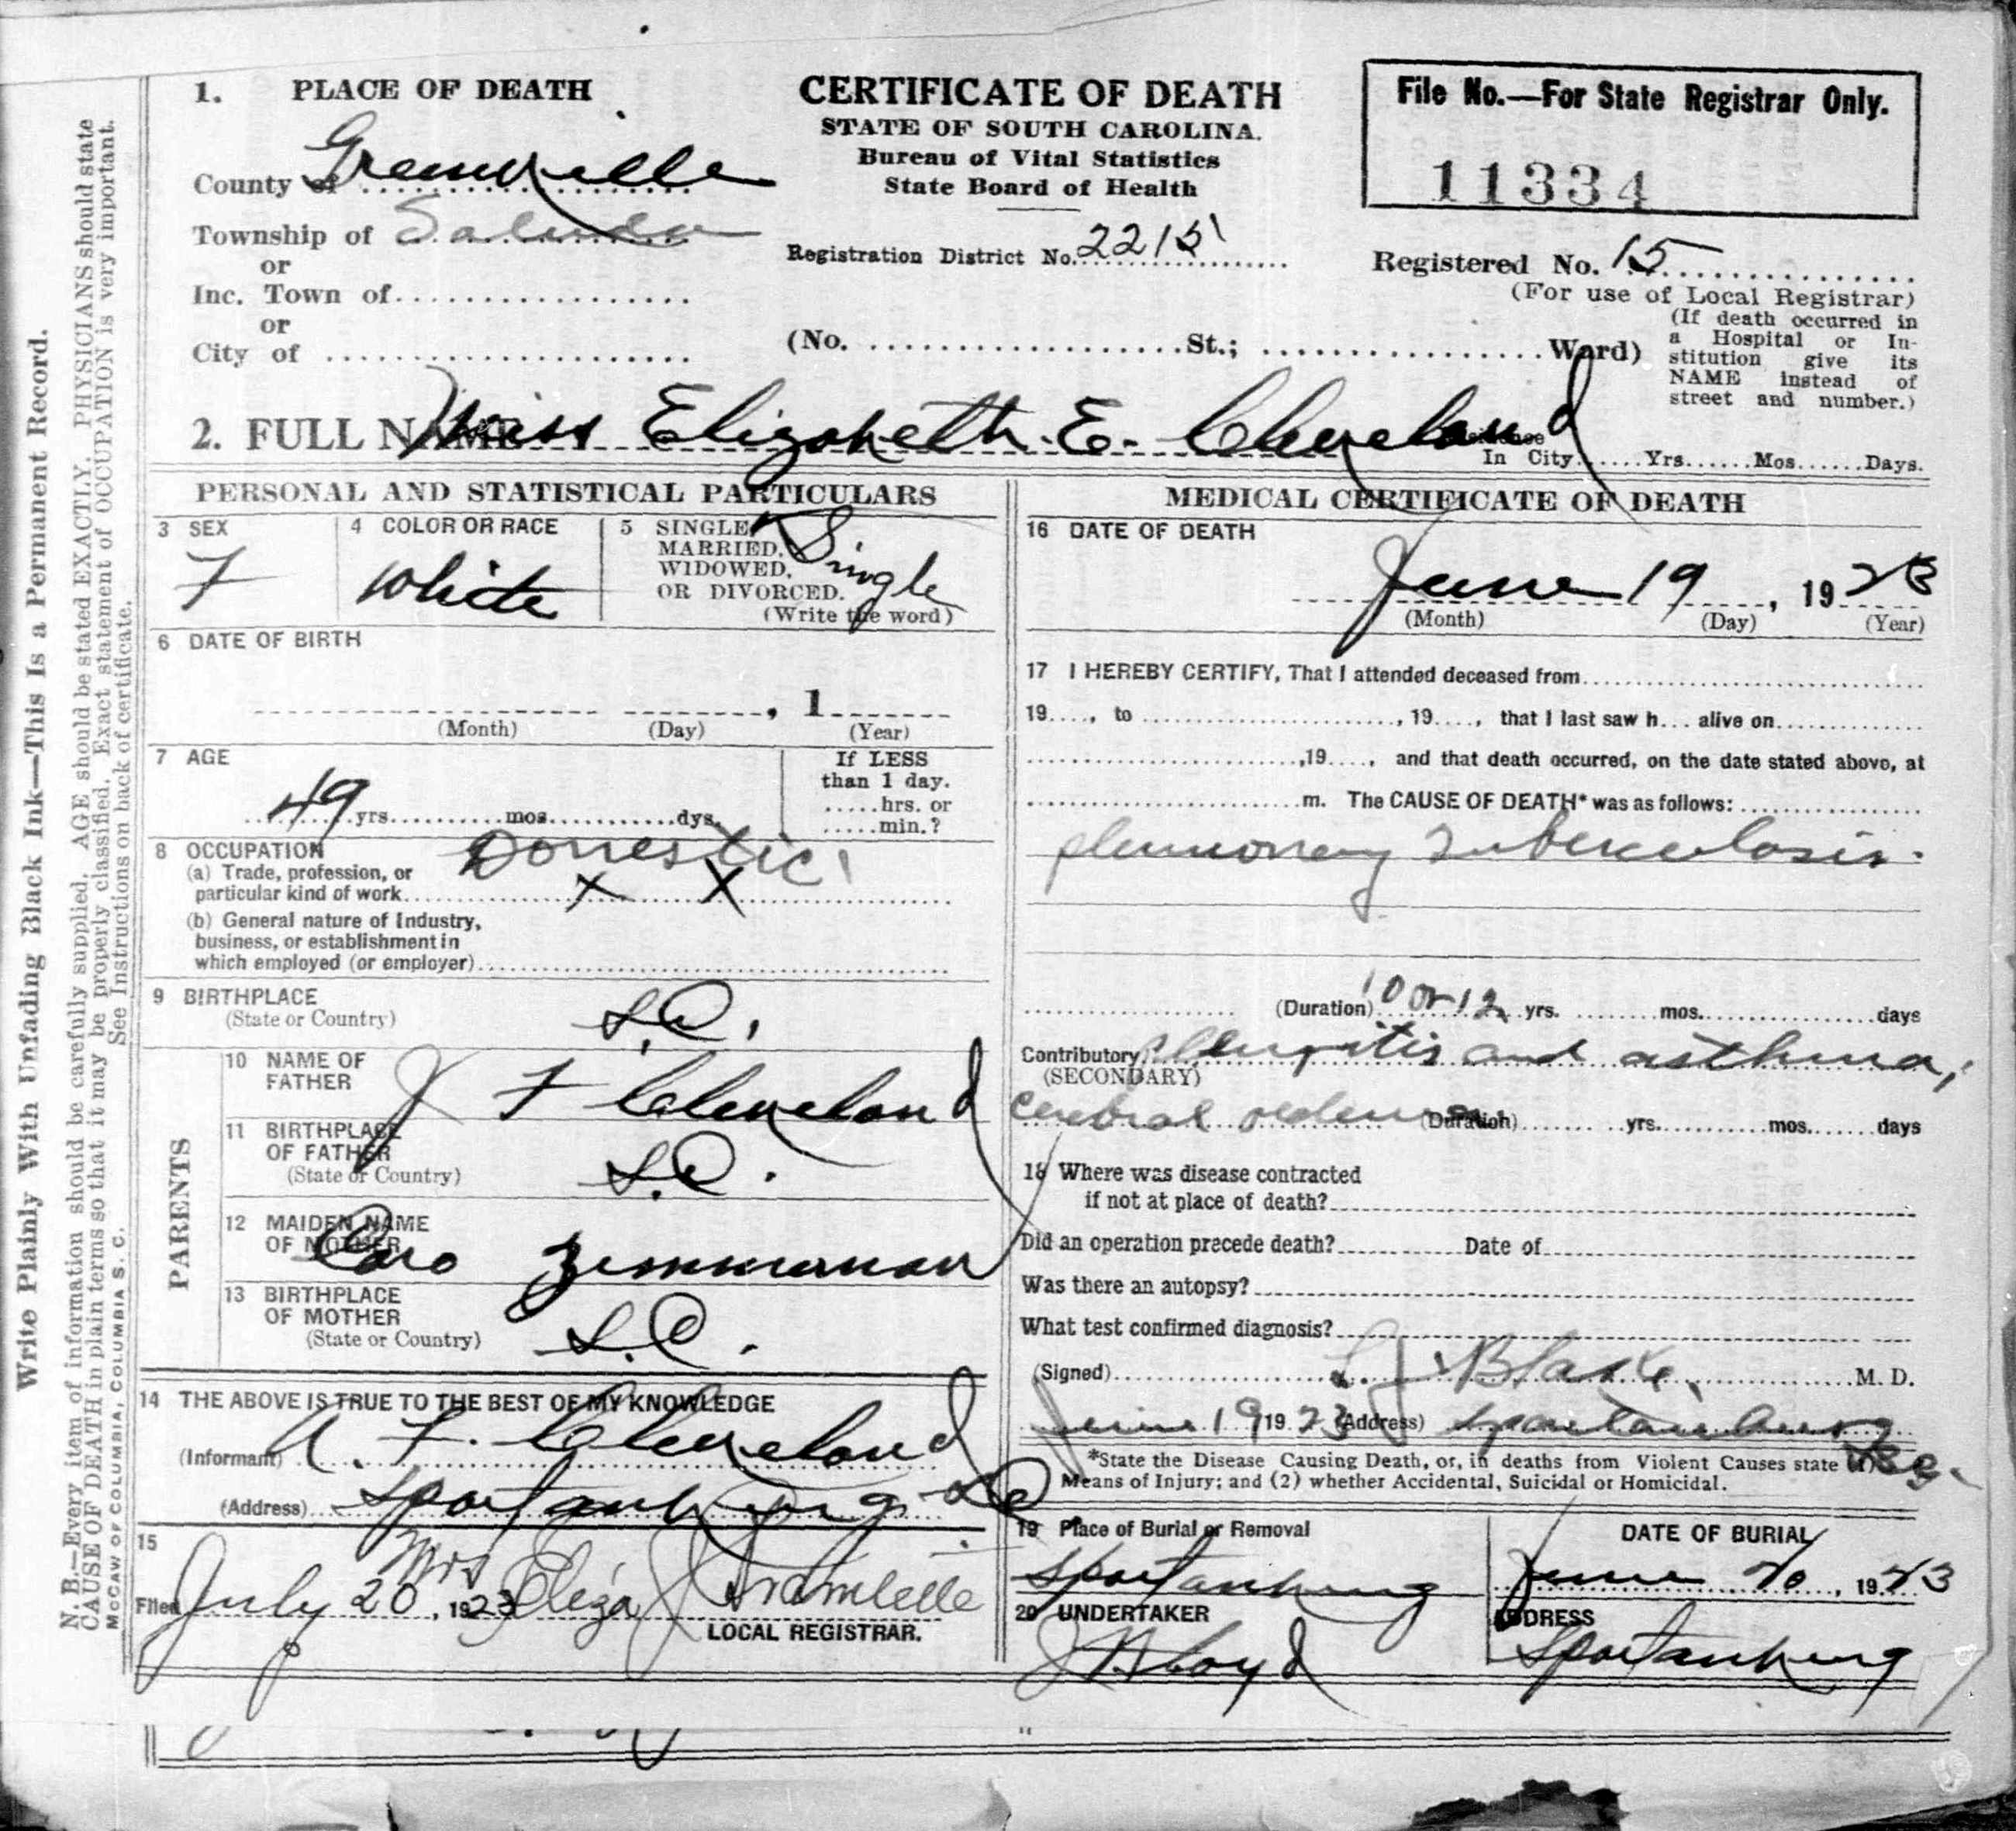 1. PLACE OF DEATH
County of Greenville
Township of Saluda
or
Inc. Town of
or
City of
CERTIFICATE OF DEATH
STATE OF SOUTH CAROLINA.
Bureau of Vital Statistics
State Board of Health
Registration District No. 2215
(No. St.; Ward)
File No.—For State Registrar Only.
11334
Registered No. 15
(For use of Local Registrar)
(If death occurred in
a Hospital or In-
stitution give its
NAME instead of
street and number.)
2. FULL NAME Miss Elizabeth E. Cleveland
In City Yrs. Mos. Days.
PERSONAL AND STATISTICAL PARTICULARS
3 SEX
F
4 COLOR OR RACE
White
5 SINGLE,
MARRIED,
WIDOWED,
OR DIVORCED.
(Write the word)
Single
6 DATE OF BIRTH
, 1
(Month) (Day) (Year)
7 AGE
49 yrs. mos. dys.
If LESS
than 1 day.
hrs. or
min.?
8 OCCUPATION
Domestic
(a) Trade, profession, or
particular kind of work X X
(b) General nature of Industry,
business, or establishment in
which employed (or employer)
9 BIRTHPLACE
(State or Country)
S.C.
PARENTS
10 NAME OF
FATHER
J F Cleveland
11 BIRTHPLACE
OF FATHER
(State or Country)
S.C.
12 MAIDEN NAME
OF MOTHER
Caro Zimmerman
13 BIRTHPLACE
OF MOTHER
(State or Country)
S.C.
14 THE ABOVE IS TRUE TO THE BEST OF MY KNOWLEDGE
(Informant) A. F. Cleveland
(Address) Spartanburg SC
15
Filed July 20, 1923 Mrs Eliza J
LOCAL REGISTRAR.
MEDICAL CERTIFICATE OF DEATH
16 DATE OF DEATH
June 19, 1923
(Month) (Day) (Year)
17 I HEREBY CERTIFY, That I attended deceased from
19, to , 19, that I last saw h alive on
,19, and that death occurred, on the date stated above, at
m. The CAUSE OF DEATH* was as follows:
plumonary Tuberculosis.
(Duration) 10 or 12 yrs. mos. days
Contributory pleuritis and asthma,
(SECONDARY)
cerebral oedema (Duration) yrs. mos. days
18 Where was disease contracted
if not at place of death?
Did an operation precede death? Date of
Was there an autopsy?
What test confirmed diagnosis?
(Signed) L. J. Blake, M. D.
June 19 1923 (Address) Spartanburg
*State the Disease Causing Death, or, in deaths from Violent Causes state (1)
Means of Injury; and (2) whether Accidental, Suicidal or Homicidal.
19 Place of Burial or Removal
Spartanburg
DATE OF BURIAL
June 20, 1923
20 UNDERTAKER
J Floyd
ADDRESS
Spartanburg
Write Plainly With Unfading Black Ink—This Is a Permanent Record.
N. B.—Every item of information should be carefully supplied. AGE should be stated EXACTLY. PHYSICIANS should state
CAUSE OF DEATH in plain terms so that it may be properly classified. Exact statement of OCCUPATION is very important.
See Instructions on back of certificate.
McCAW OF COLUMBIA, COLUMBIA S. C.